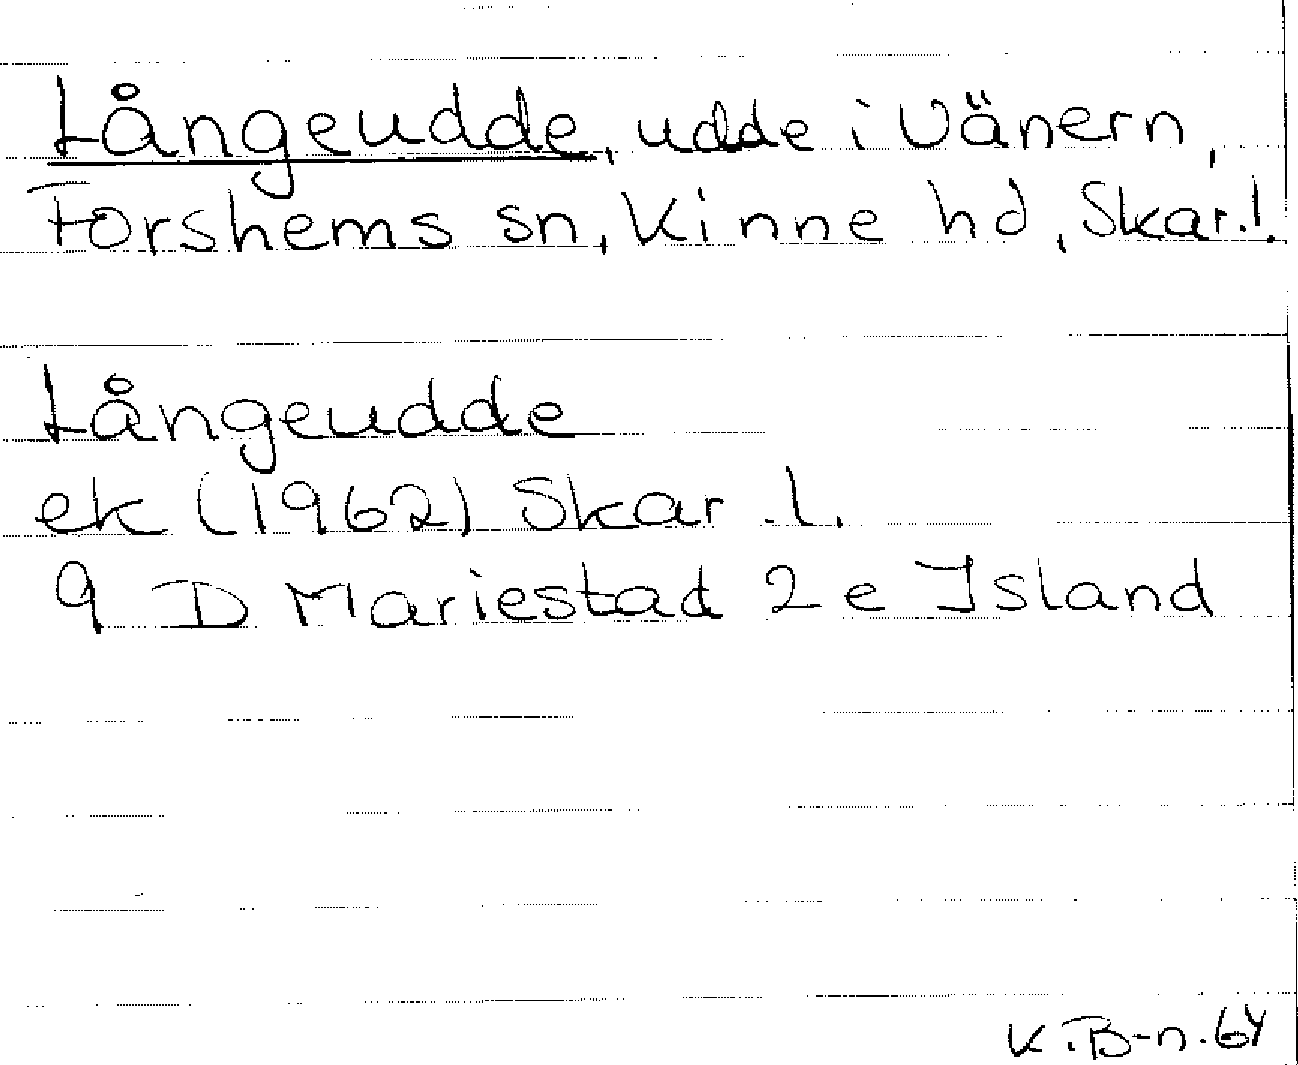 Långeudde, udde i Vänern,
Forshems sn, Kinne hd, Skar.l.
Långeudde
ek (1962) Skar.l.
9 D Mariestad 2 e Island
K.B-n.64